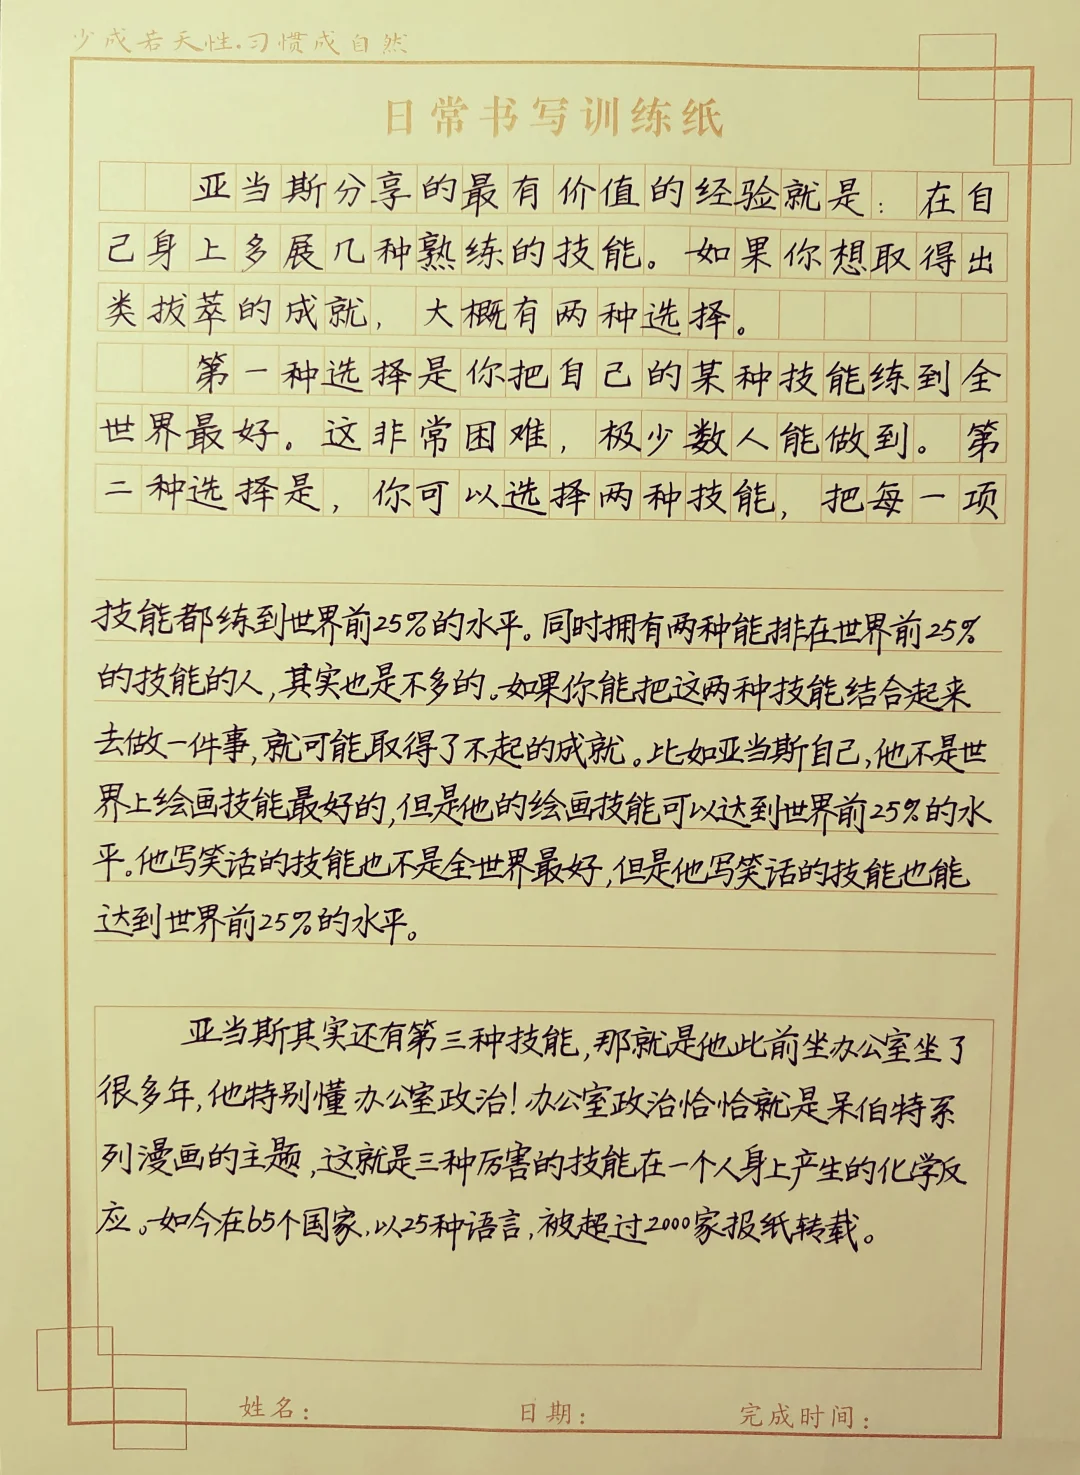 少成若天性·习惯成自然
日常书写训练纸
亚当斯分享的最有价值的经验就是：在自
己身上多展几种熟练的技能。如果你想取得出
类拔萃的成就，大概有两种选择。
第一种选择是你把自己的某种技能练到全
世界最好。这非常困难，极少数人能做到。第
二种选择是，你可以选择两种技能，把每一项
技能都练到世界前25%的水平。同时拥有两种能排在世界前25%
的技能的人，其实也是不多的。如果你能把这两种技能结合起来
去做一件事，就可能取得了不起的成就。比如亚当斯自己，他不是世
界上绘画技能最好的，但是他的绘画技能可以达到世界前25%的水
平。他写笑话的技能也不是全世界最好，但是他写笑话的技能也能
达到世界前25%的水平。
亚当斯其实还有第三种技能，那就是他此前坐办公室坐了
很多年，他特别懂办公室政治！办公室政治恰恰就是呆伯特系
列漫画的主题，这就是三种厉害的技能在一个人身上产生的化学反
应。如今在65个国家，以25种语言，被超过2000家报纸转载。
姓名： 日期： 完成时间：